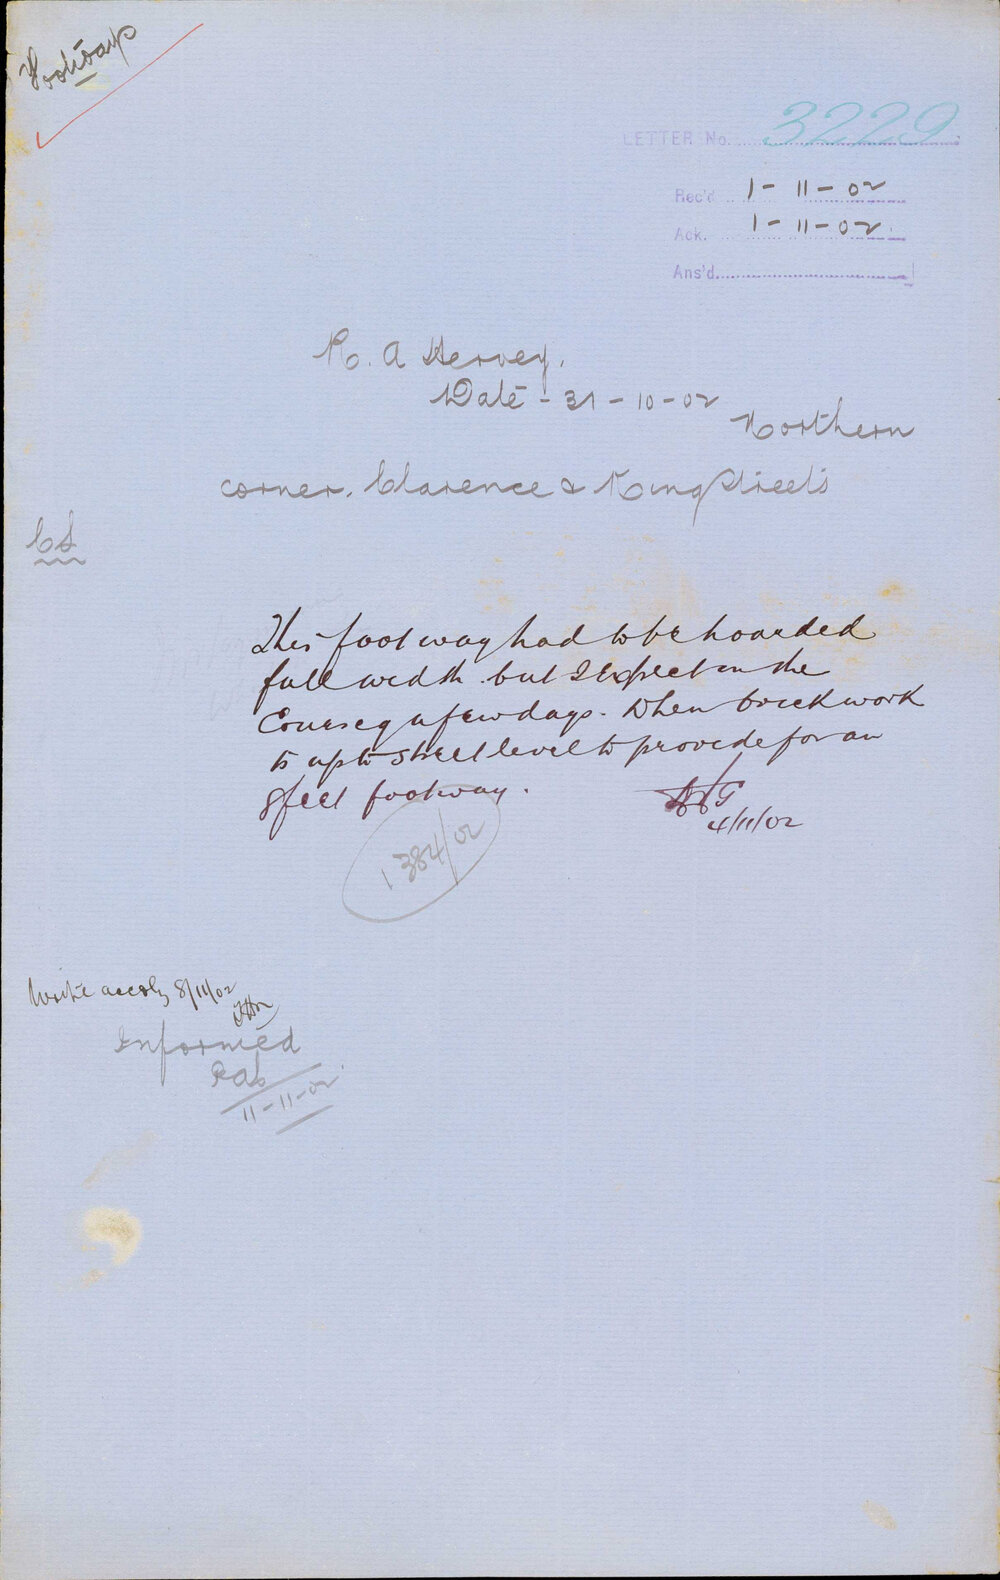 Footways
LETTER No. 3229
Rec'd 1-11-02
Ack. 1-11-02.
Ans'd.
R. A Hervey.
Date - 31-10-02
Northern
corner. Clarence & King Streets
CS
This footway had to be hoarded
full width. but I expect in the
Course of a few days. When brickwork
is up to street level to provide for an
8 feet footway.
4/11/02
1384/02
Write accdly 8/11/02
Informed
11-11-02